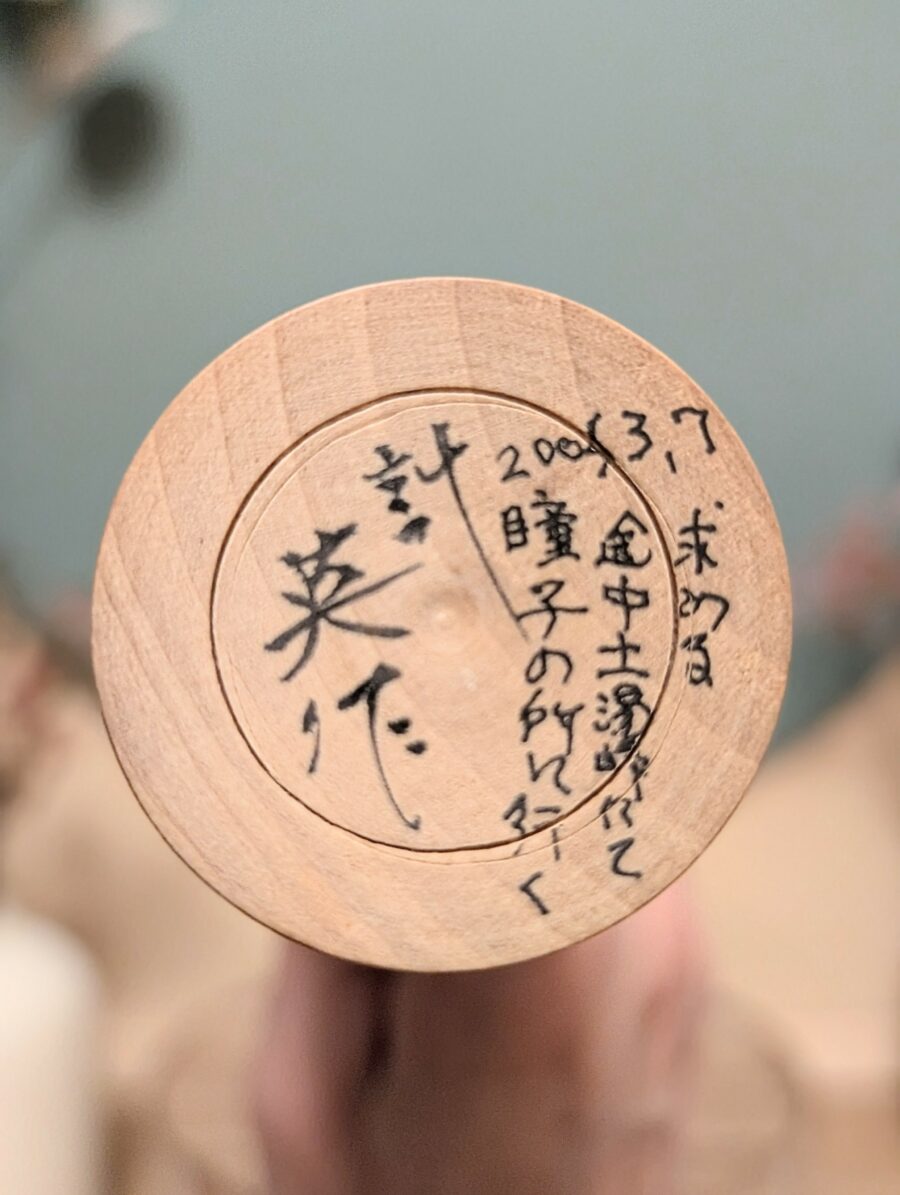 計英作
2005,3,7
瞳子の所に行く
途中土湯峠にて
求める